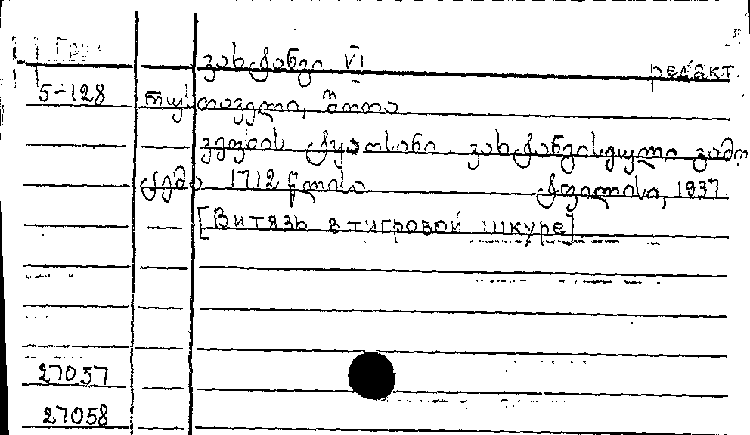 Груз
ვახტანგი VI редакт.
5-128 რუსთაველი, შოთა
ვეფხის ტყაოსანი. ვახტანგისეული გამო
ცემა 1712 წლისა ტფილისი, 1937
[Витязь в тигровой шкуре]
27057
27058